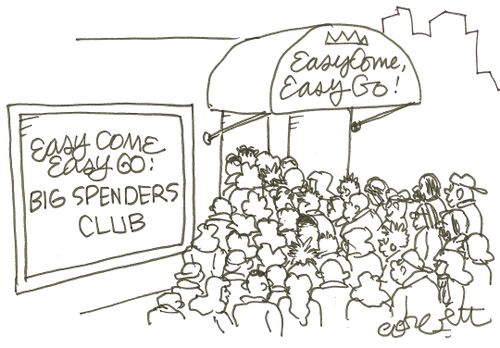 EasyCome,
Easy Go!
EASY COME
EASY GO:
BIG SPENDERS
CLUB